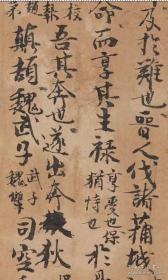 及於難也晉人伐諸蒲城
命而享其生祿享受也保猶恃也於
校報吾其奔也遂出奔狄
顛頡魏武子武子魏犨司空